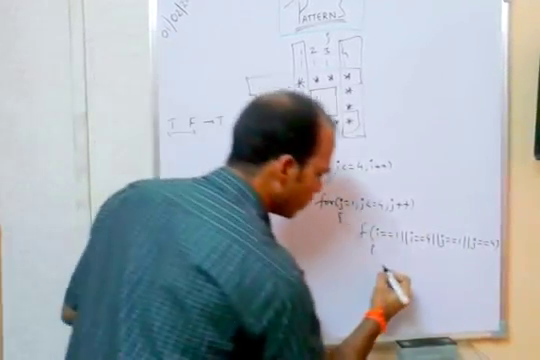 01/02/2
PATTERNS
j
1 2 3 4
1 1
* * * *
*
*
* *
T F → T
; i<=4, i++)
for(j=1, j<=4, j++)
{
f(i==1||i==4||j==1||j==4)
{